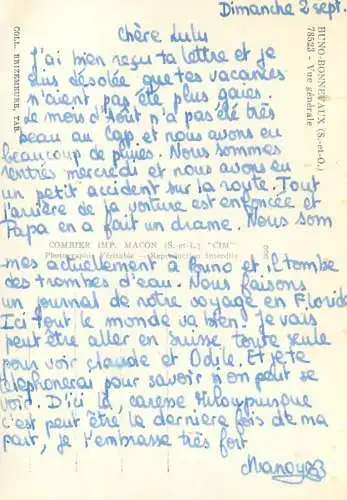 Dimanche 2 sept.
Chère Lulu
J'ai bien reçu ta lettre et je
suis désolée que tes vacances
n'aient pas été plus gaies.
Le mois d'août n'a pas été très
beau au Cap et nous avons eu
beaucoup de pluies. Nous sommes
rentrés mercredi et nous avons eu
un petit accident sur la route. Tout
l'arrière de la voiture est enfoncée et
Papa en a fait un drame. Nous som
mes actuellement à Bruno et, il tombe
des trombes d'eau. Nous faisons
un journal de notre voyage en Floride
Ici tout le monde va bien. Je vais
peut être aller en Suisse toute seule
pour voir Claude et Odile. Et je te
téléphonerai pour savoir si on peut se
voir. D'ici là, caresse
c'est peut être la dernière fois de ma
part, je t'embrasse très fort
BUNO-BONNEVAUX (S.-et-O.)
78523 - Vue générale
COLL. BRIZEMEURE, TAB.
COMBIER IMP. MACON (S.-et-L.) "CIM"
Photographie Véritable - Reproduction Interdite